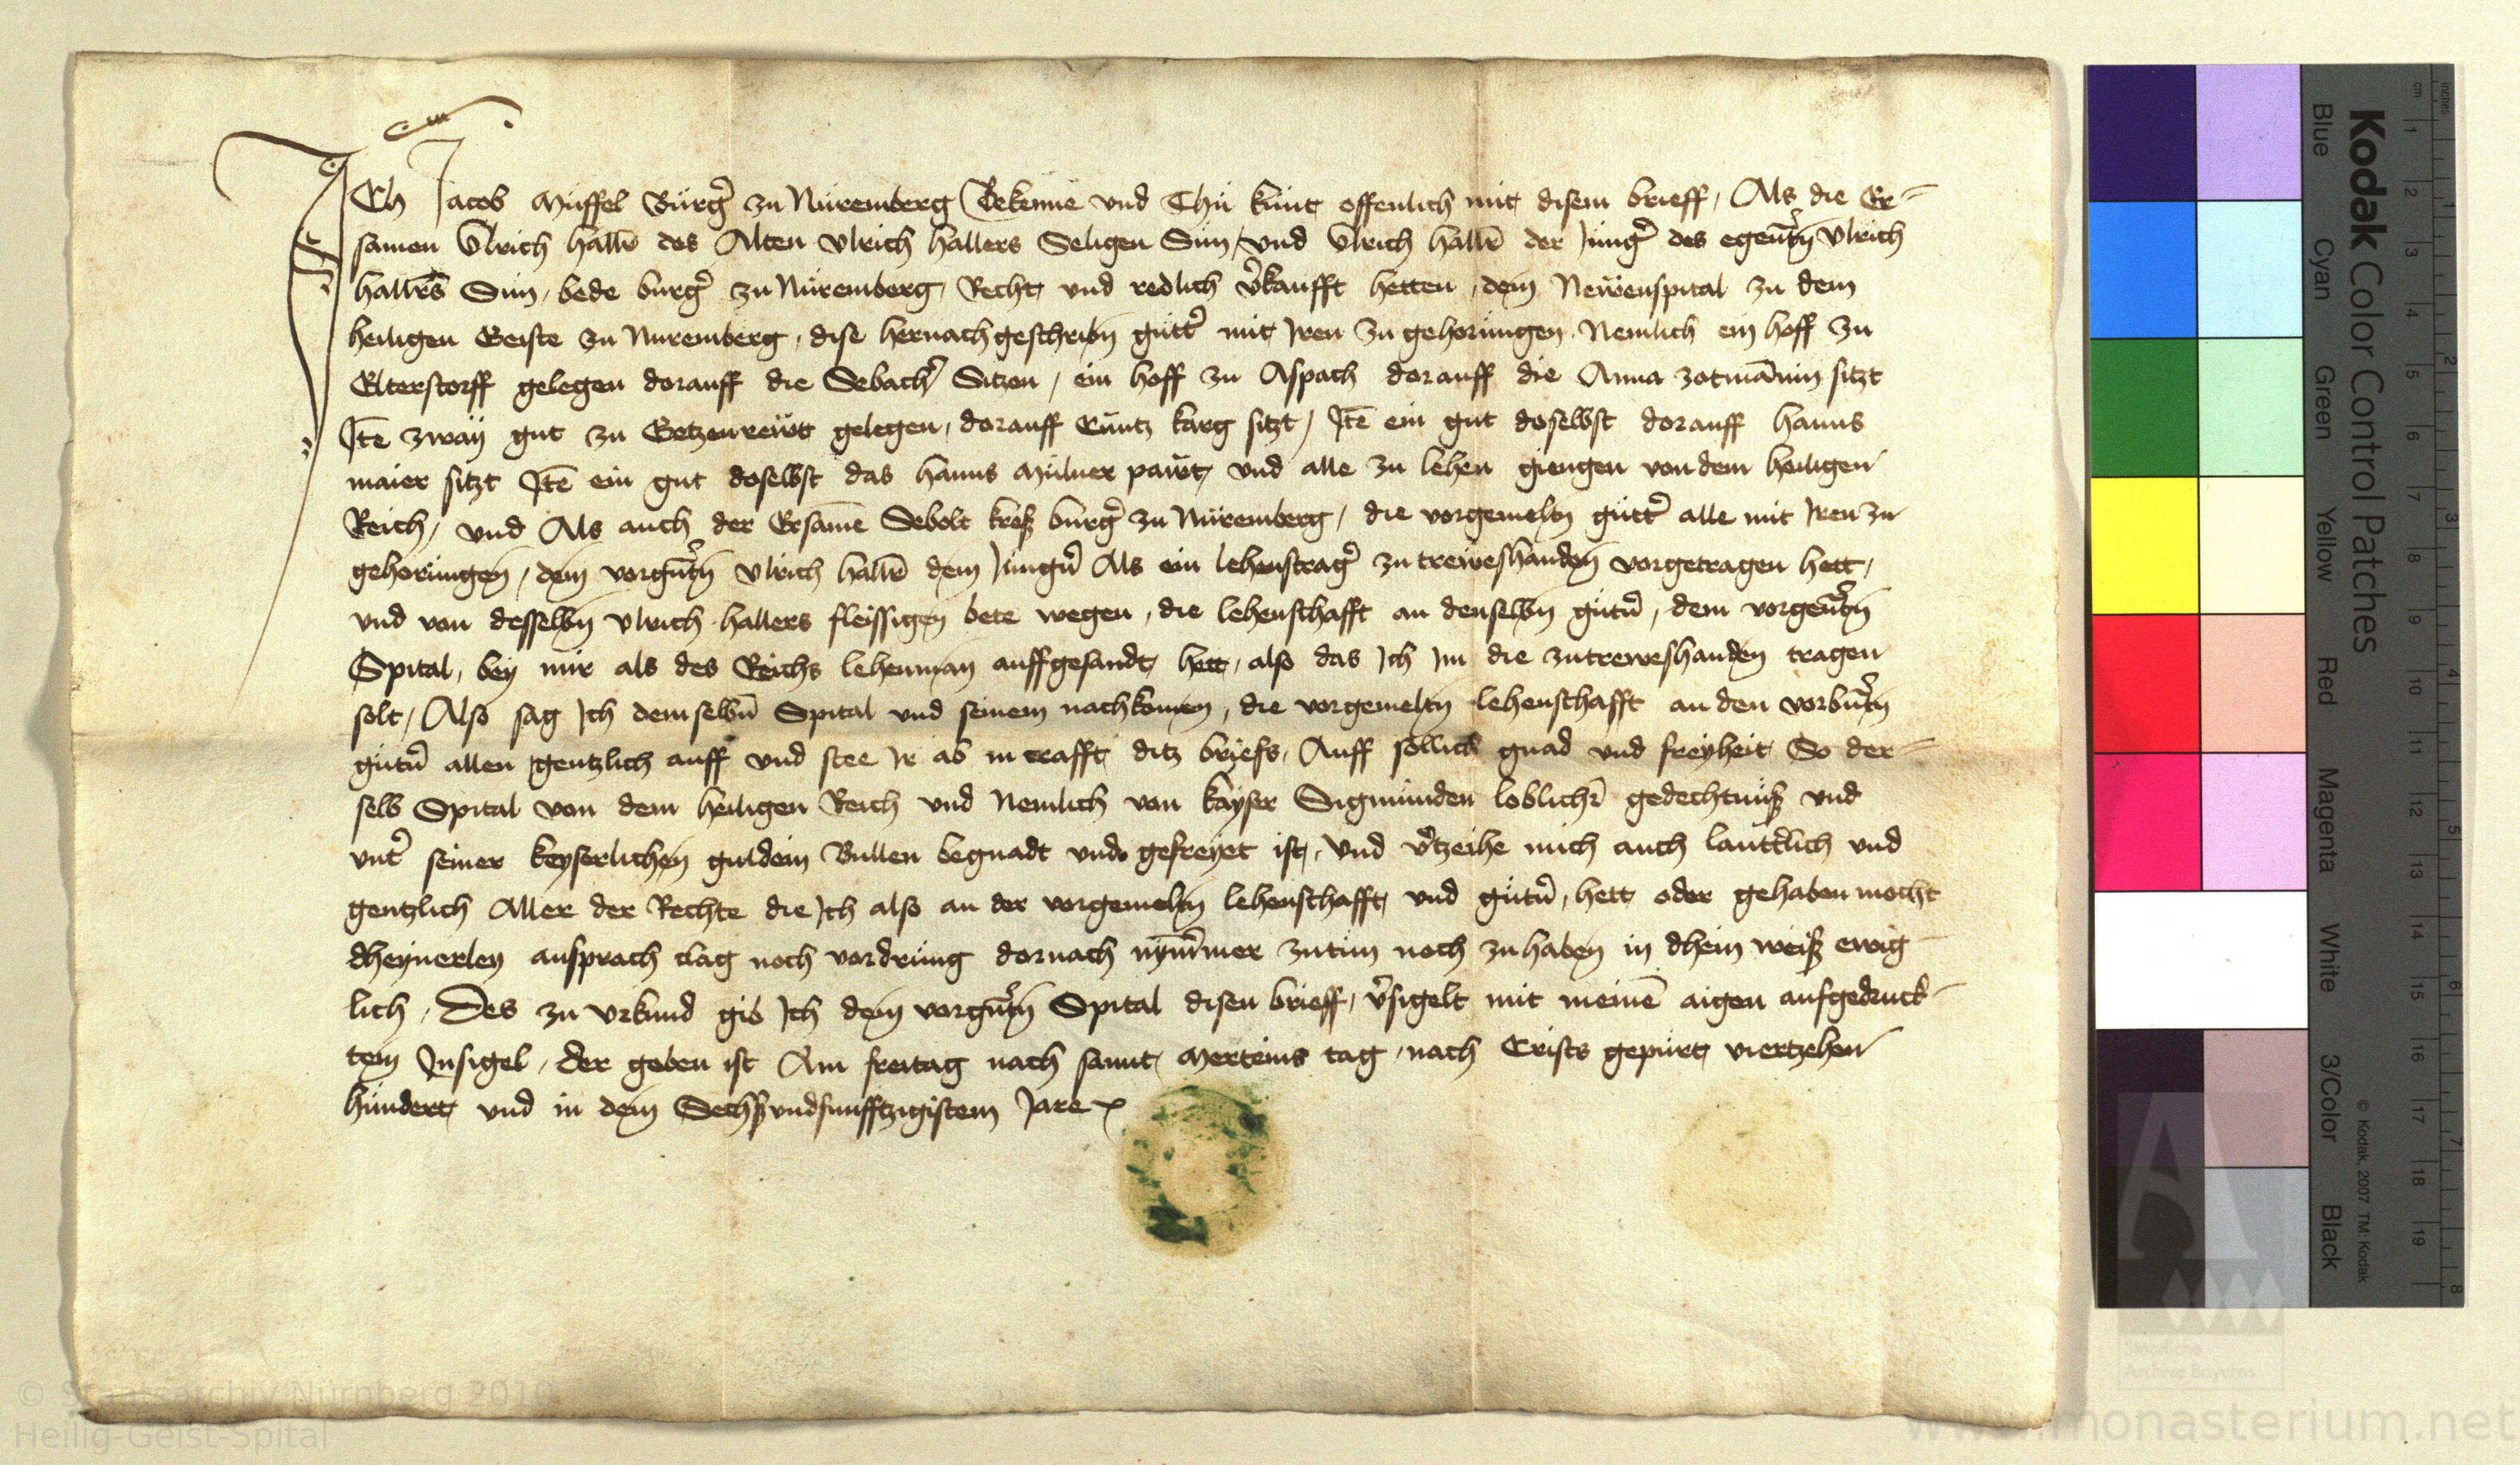 ICh Jacob Muffel Burg̃ zu Nüremberg Bekenne vnd Thü künt offenlich mit disem brieff, Als die Er=
samen Vlrich Hallr̄ des Alten Vlrich Hallers Seligen Sun, vnd Vlrich Hallr̄ der Jüng̃ des egen̄tn̄ Vlrich
Hallrs̄ Sün, bede burg̃ zu Nüremberg, Recht vnd redlich v̄kaufft hetten, dem Newenspital zu dem
heiligen Geiste zu Nuremberg, dise hernachgeschribn̄ gütt̄ mit Jren zu gehorüngen. Nemlich ein hoff zu
Elterstorff gelegen dorauff die Sebach̄ Sitzen, ein hoff zu Aspach dorauff die Anna zotmānin sitzt
Itē zway gut zu Getzenrewt gelegen, dorauff Cüntz karg sitzt, Itē ein gut doselbst dorauff Hanns
maier sitzt Itē ein gut doselbst das Hanns Mülner pawt, vnd alle zu lehen giengen von dem heiligen
Reich, vnd Als auch der Ersame Sebolt kreß burg̃ zu Nüremberg, die vorgemeltn̄ gütt̄ alle mit Jren zu
gehorüngen, dem vorgn̄tn̄ Vlrich Hallr̄ dem Jüngn̄ Als ein lehenstrag̃ zu treweshanden vorgetragen hett,
vnd von desselbn̄ Vlrich Hallers fleissigen bete wegen, die lehenschafft an denselbn̄ gütn̄, dem vorgen̄tn̄
Spital, bey mir als des Reichs lehenman auffgesandt hett, also das Ich Im die zutreweshanden tragen
solt, Also sag Ich demselbn̄ Spital vnd seinem nachkomen, die vorgemeltn̄ lehenschafft an den vorbn̄tn̄
gütn̄ allen gentzlich auff vnd stee Jr ab in crafft ditz briefs, Auff sollich gnad vnd freyheit So der=
selb Spital von dem heiligen Reich vnd Nemlich von kayser Sigmünden loblichr̄ gedechtnüß vnd
vnt̄ seiner keyserlichen guldein Bullen begnadt vnd gefreyet ist, Vnd v̄tzeihe mich auch lautt̄lich vnd
gentzlich Aller der Rechte die Ich also an der vorgemeltn̄ lehenschafft vnd gütn̄, hett oder gehaben mocht
dheynerley ansprach clag noch vordrüng dornach nym̄mer zutun noch zuhaben in dhein weiß ewig
lich, Des zu vrkund gib Ich dem vorgn̄tn̄ Spital disen brieff, v̄sigelt mit meinē aigen aufgedruck=
tem Insigel, der geben ist Am freitag nach sannt Merteins tag, nach Crists gepürt viertzehen
hündert vnd in dem Sechßvndfunfftzigistem Jare
Kodak Color Control Patches
Blue Cyan Green Yellow Red Magenta White 3/Color Black
© Kodak, 2007 TM: Kodak
inches 1 2 3 4 5 6 7 8
cm 1 2 3 4 5 6 7 8 9 10 11 12 13 14 15 16 17 18 19
Staatliche
Archive Bayerns
© Staatsarchiv Nürnberg 2010
Heilig-Geist-Spital
www.monasterium.net